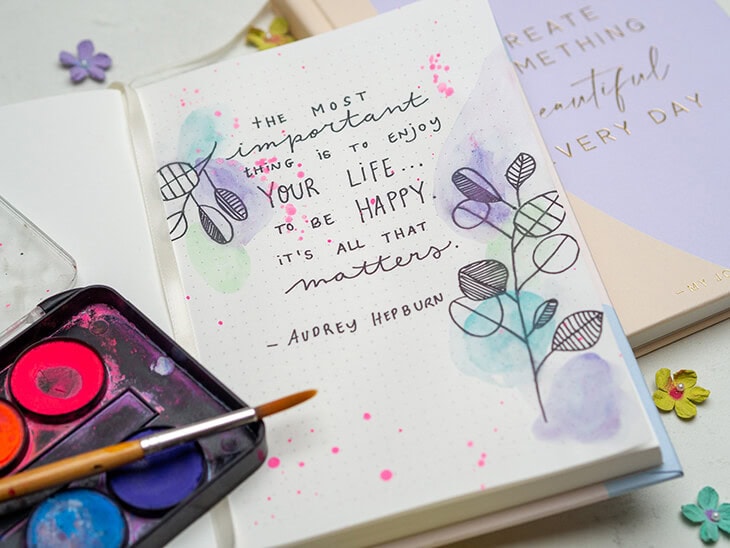 THE MOST
important
thing is to enjoy
YOUR LIFE...
to be HAPPY.
it's all that
matters.
- AUDREY HEPBURN
CREATE
SOMETHING
beautiful
EVERY DAY
—MY